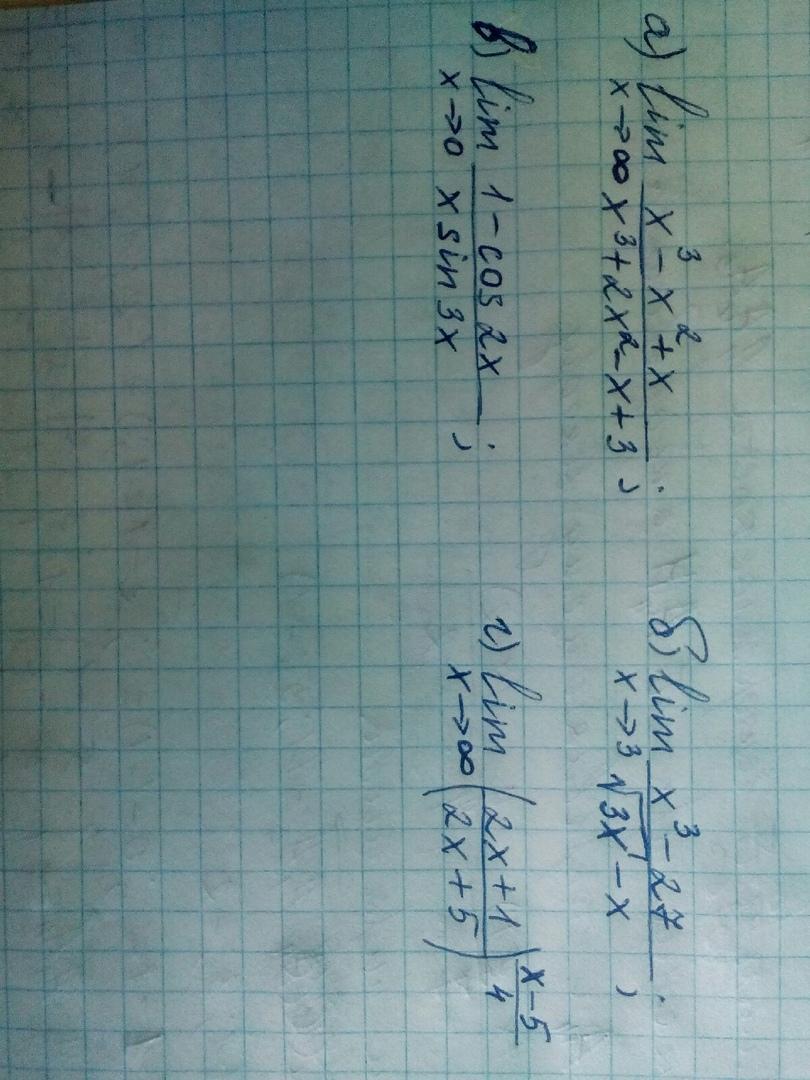 а) lim x→∞ (x³ - x² + x)/(x³ + 2x² - x + 3);
б) lim x→3 (x³ - 27)/(√3x - x);
в) lim x→0 (1 - cos 2x)/(x sin 3x);
г) lim x→∞ ((2x + 1)/(2x + 5))^((x - 5)/4)